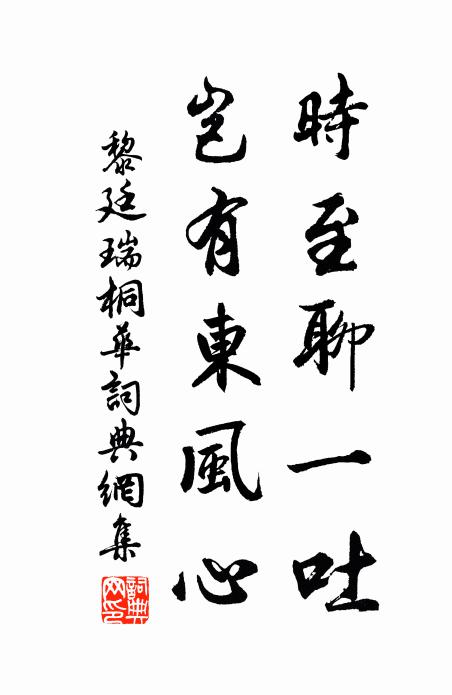 時至聊一吐
豈有東風心
黎廷瑞桐華詞典網集
詞典網印